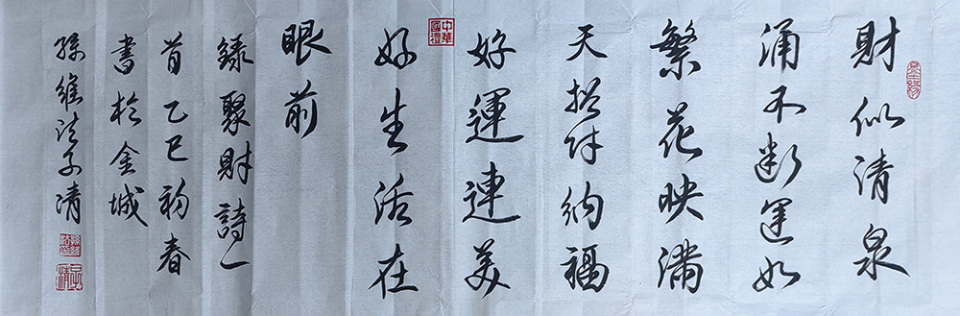 財似清泉
涌不断運如
繁花映滿
天招财納福
好運連美
好生活在
眼前
錄聚財詩一
首乙巳初春
書於金城
孫維子清
中華國禮